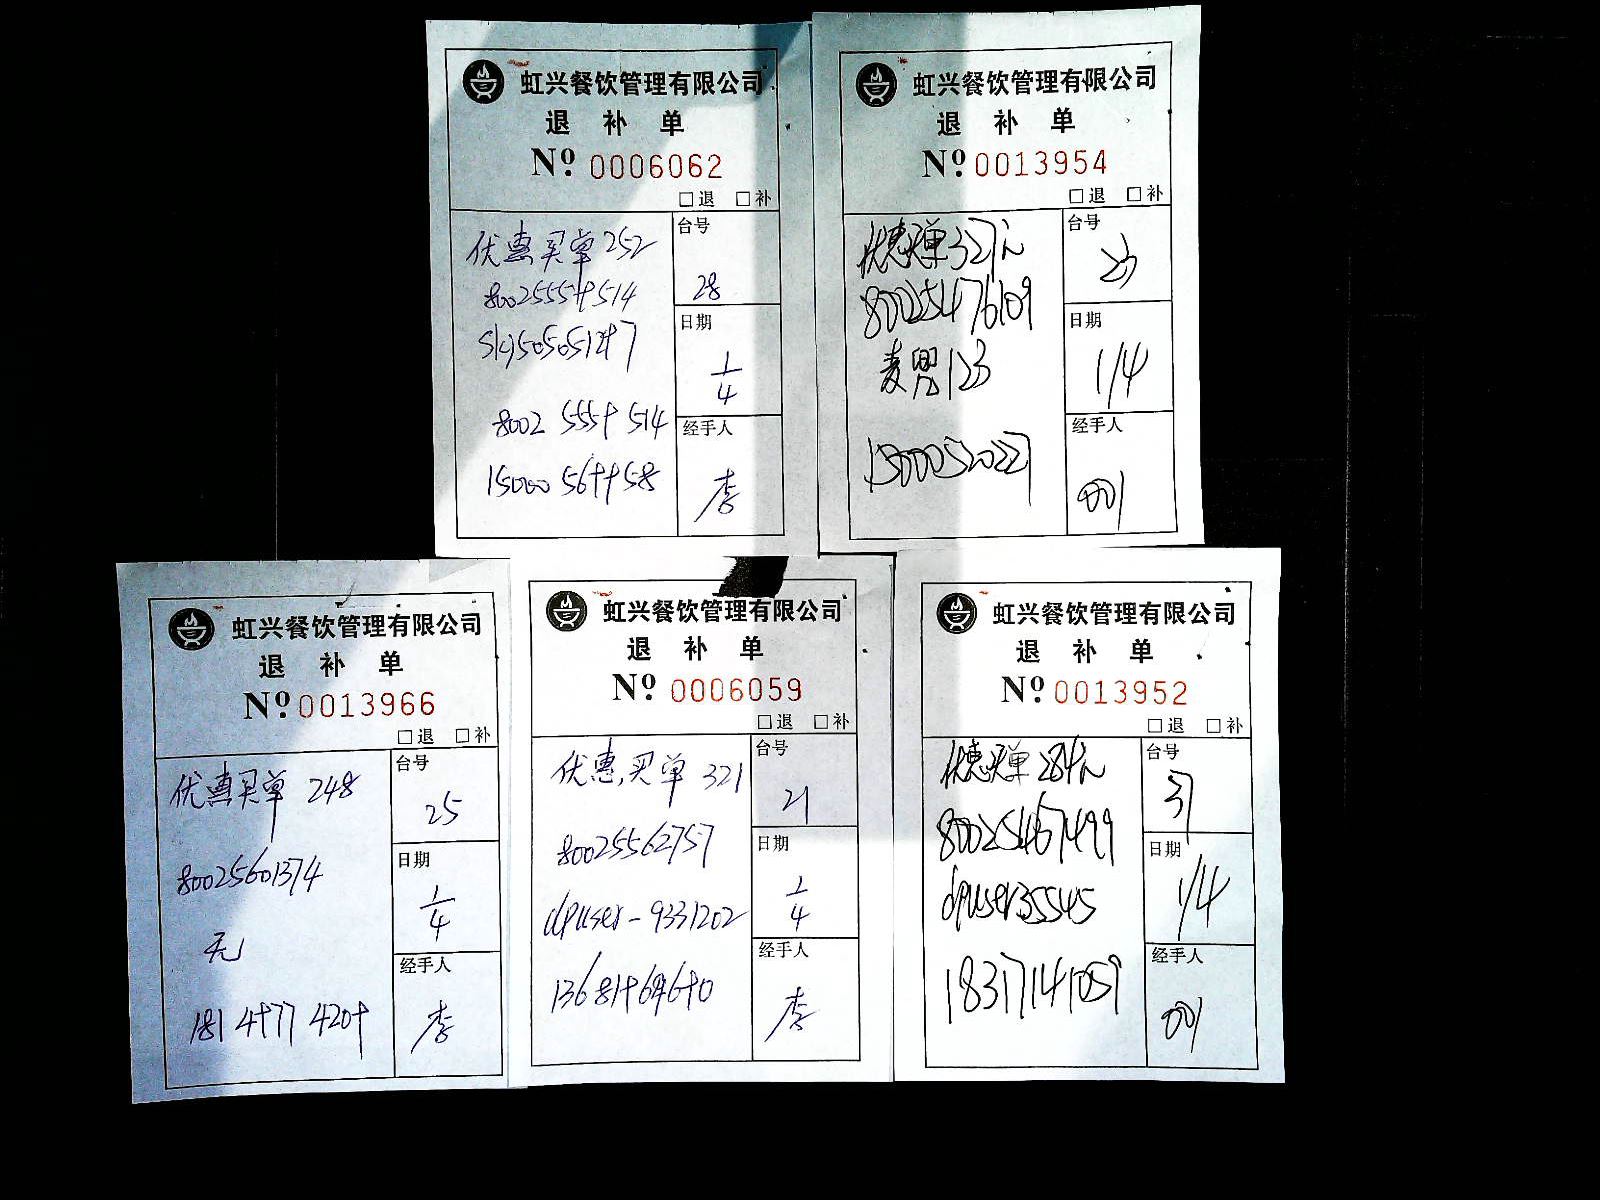 虹兴餐饮管理有限公司
退 补 单
Nº 0006062
□退 □补
优惠买单 252
台号
28
日期
1/4
8002 514
经手人
李
虹兴餐饮管理有限公司
退 补 单
Nº 0013954
□退 □补
优惠买单 327元
80025476109
台号
23
日期
1/4
123
经手人
001
虹兴餐饮管理有限公司
退 补 单
Nº 0013966
□退 □补
优惠买单 248
台号
25
80025601374
日期
1/4
无
经手人
李
虹兴餐饮管理有限公司
退 补 单
Nº 0006059
□退 □补
优惠买单 321
台号
21
80025562757
日期
1/4
dpuser-9331202
经手人
李
虹兴餐饮管理有限公司
退 补 单
Nº 0013952
□退 □补
优惠买单 284元
台号
31
80025467499
日期
1/4
dpuser35545
经手人
18317141059
001